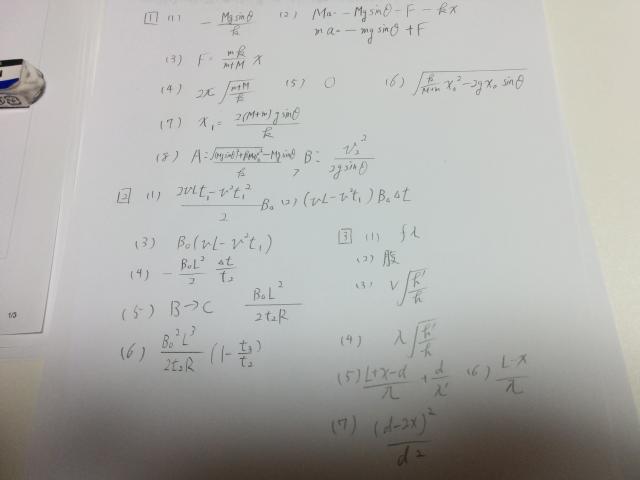 1 (1) - Mg sinθ / k (2) Ma = - Mg sinθ - F - kx
ma = - mg sinθ + F
(3) F = mk / m+M x
(4) 2π √(m+M / k) (5) 0 (6) √(k / M+m x₀² - 2g x₀ sinθ)
(7) x₁ = 2(M+m) g sinθ / k
(8) A = √((Mg sinθ)² + kMv₂²) - Mg sinθ / k , B = v₂² / 2g sinθ
2 (1) 2vLt₁ - v²t₁² / 2 B₀ (2) (vL - v²t₁) B₀ Δt
(3) B₀ (vL - v²t₁)
(4) - B₀L² / 2 Δt / t₂
(5) B → C B₀L² / 2t₂R
(6) B₀²L³ / 2t₂R (1 - t₃ / t₂)
3 (1) fλ
(2) 腹
(3) V √(h' / h)
(4) λ √(h' / h)
(5) L+x-d / λ + d / λ' (6) L-x / λ
(7) (d-2x)² / d²
1/3